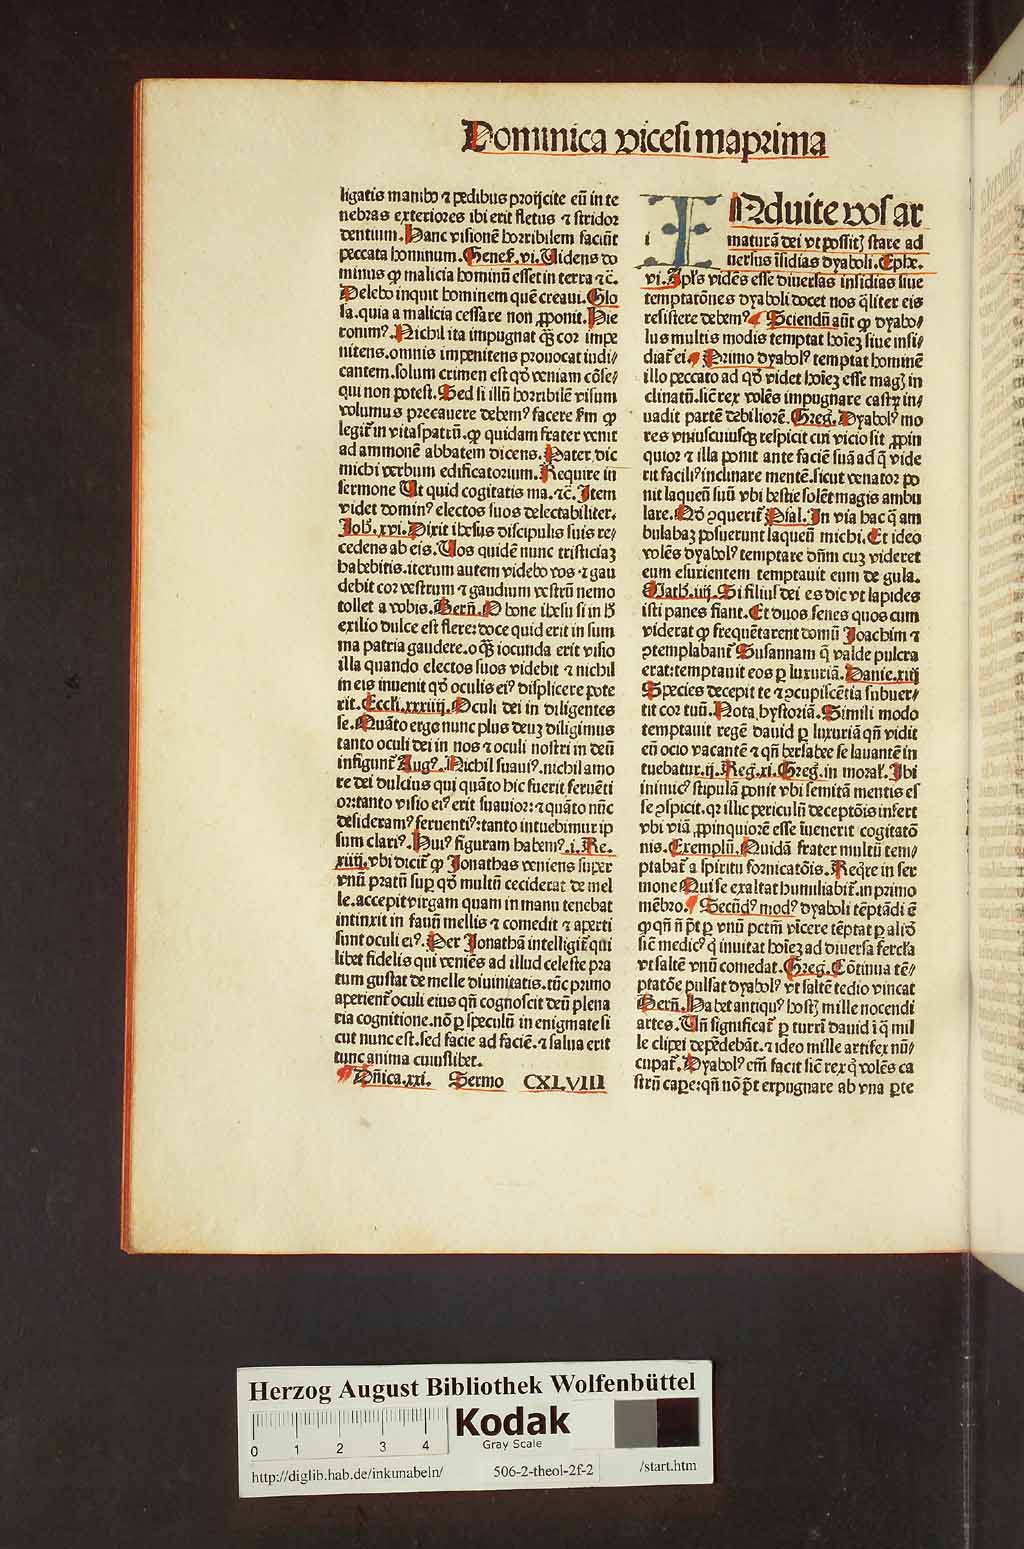 Dominica vicesimaprima
ligatis manibꝰ ⁊ pedibus proijcite eū in te
nebras exteriores ibi erit fletus ⁊ stridor
dentium. Hanc visionē horribilem faciūt
peccata hominum. Geneš. vi. Uidens do
minus ꝙ malicia hominū esset in terra ⁊c̄.
Delebo inquit hominem quē creaui. Glo
sa. quia a malicia cessare non ꝓponit. Hie
ronimꝰ. Nichil ita impugnat qͣꝫ cor impe
nitens. omnis impenitens prouocat iudi/
cantem. solum crimen est qd̓ veniam cōse/
qui non potest. Sed si illū horribilē visum
volumus precauere debemꝰ facere s̄m ꝙ
legit̄ in vitaspatrū. ꝙ quidam frater venit
ad ammonē abbatem dicens. Pater dic
michi verbum edificatorium. Require in
sermone Ut quid cogitatis ma. ⁊c̄. Item
videt dominꝰ electos suos delectabiliter.
Joh̄. xvi. Dixit ihesus discipulis suis re/
cedens ab eis. Uos quidē nunc tristiciaꝫ
habebitis. iterum autem videbo vos ⁊ gau
debit cor vestrum ⁊ gaudium vestrū nemo
tollet a vobis. Bern̄. O bone ihesu si in h̄
exilio dulce est flere: doce quid erit in sum
ma patria gaudere. o qͣꝫ iocunda erit visio
illa quando electos suos videbit ⁊ nichil
in eis inuenit qd̓ oculis eiꝰ displicere pote
rit. Eccli. xxxiiij. Oculi dei in diligentes
se. Quāto ergo nunc plus deuꝫ diligimus
tanto oculi dei in nos ⁊ oculi nostri in deū
infigunt̄ Augꝰ. Nichil suauiꝰ. nichil amo
re dei dulcius qui quāto hic fuerit feruēti
or: tanto visio eiꝰ erit suauior: ⁊ quāto nūc
desideramꝰ feruentiꝰ: tanto intuebimur ip
sum clariꝰ. Huiꝰ figuram habemꝰ. i. Re.
xiiij. vbi dicit̄ ꝙ Jonathas veniens super
vnū pratū sup̱ qd̓ multū ceciderat de mel
le. accepit virgam quam in manu tenebat
intinxit in fauū mellis ⁊ comedit ⁊ aperti
sunt oculi eiꝰ. Per Jonathā intelligit̄ qui
libet fidelis qui veniēs ad illud celeste pra
tum gustat de melle diuinitatis. tūc primo
aperient̄ oculi eius qn̄ cognoscit deū plena
ria cognitione. nō ꝑ speculū in enigmate si
cut nunc est. sed facie ad faciē. ⁊ salua erit
tunc anima cuiuslibet.
Dn̄ica. xxi. Sermo CXLVIII
INduite vos ar
i maturā dei vt possitꝫ stare ad
uersus īsidias dyaboli. Ephe.
vi. Apl̓s vidēs esse diuersas insidias siue
temptatōnes dyaboli docet nos qͣliter eis
resistere debemꝰ Sciendū aūt ꝙ dyabo/
lus multis modis temptat hoīeꝫ siue insi/
diat̄ ei. Primo dyabolꝰ temptat hominē
illo peccato ad qd̓ videt hoīeꝫ esse magꝫ in
clinatū. sic̄ rex volēs impugnare castꝝ in/
uadit partē debiliorē. Greg. Dyabolꝰ mo
res vniuscuiusqꝫ respicit cui vicio sit ꝓpin
quior ⁊ illa ponit ante faciē suā ad q̄ vide
rit faciliꝰ inclinare mentē. sicut venator po
nit laqueū suū vbi bestie solēt magis ambu
lare. Qd̓ ꝯquerit̄ Psal. In via hac qͣ am
bulabaꝫ posuerunt laqueū michi. Et ideo
volēs dyabolꝰ temptare dn̄m cuꝫ videret
eum esurientem temptauit eum de gula.
Math. iiij. Si filiuſ dei es dic vt lapides
isti panes fiant. Et duos senes quos cum
viderat ꝙ frequētarent domū Joachim ⁊
ꝯtemplabant̄ Susannam q̄ valde pulcra
erat: temptauit eos ꝑ luxuriā. Danie. xiij
Species decepit te ⁊ ꝯcupiscētia subuer/
tit cor tuū. Nota hystoriā. Simili modo
temptauit regē dauid ꝑ luxuriā qn̄ vidit
eū ocio vacantē ⁊ qn̄ bersabee se lauantē in
tuebatur. ij. Reg. xi. Greg. in moral̓. Ibi
inimicꝰ stipulā ponit vbi semitā mentis es
se ꝯspicit. qr illic periculū deceptōis insert
vbi viā ꝓpinquiorē esse īuenerit cogitatō
nis. Exemplū. Quidā frater multū tem/
ptabat̄ a spiritu fornicatōis. Req̄re in ser
mone Qui se exaltat humiliabit̄. in primo
mēbro. Secūdꝰ modꝰ dyaboli tēptādi ē
ꝙ qn̄ n̄ pt̄ ꝑ vnū pctm̄ vīcere tēptat ꝑ aliō
sic̄ medicꝰ q̇ inuitat hoīeꝫ ad diuersa fercl̓a
vt saltē vnū comedat. Greg. Cōtinua tē/
ptatōe pulsat dyabolꝰ vt saltē tedio vincat
Bern̄. Habet antiquꝰ hostꝫ mille nocendi
artes. Un̄ significat̄ ꝑ turrī dauid ī q̄ mil
le clipei depēdebāt. ⁊ ideo mille artifex nū/
cupat̄. Dyabolꝰ em̄ facit sic̄ rex q̇ volēs ca
strū cap̱e: qn̄ nō pt̄ expugnare ab vna p̱te
Herzog August Bibliothek Wolfenbüttel
Kodak
Gray Scale
0 1 2 3 4
http://diglib.hab.de/inkunabeln/ 506-2-theol-2f-2 /start.htm